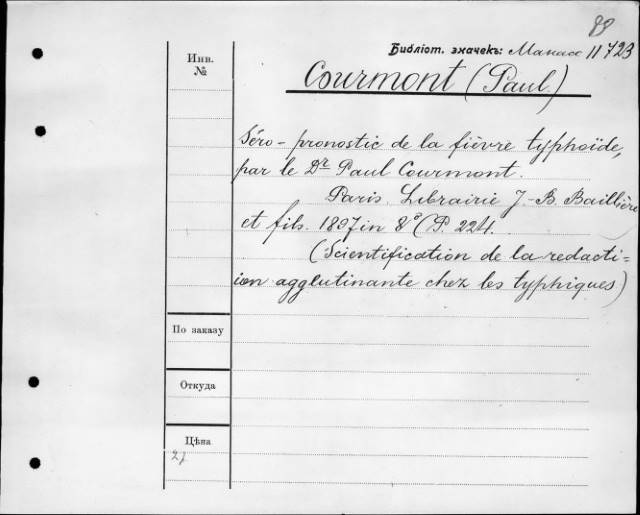 89
Библіот. значекъ: Манасс 11723
Инв.
№
Courmont (Paul.)
Séro-pronostic de la fièvre typhoïde,
par le Dr Paul Courmont.
Paris. Librairie J.-B. Baillière
et fils. 1897 in 8° (P. 224.
(Scientification de la redacti=
ion agglutinante chez les typhiques)
По заказу
Откуда
Цѣна